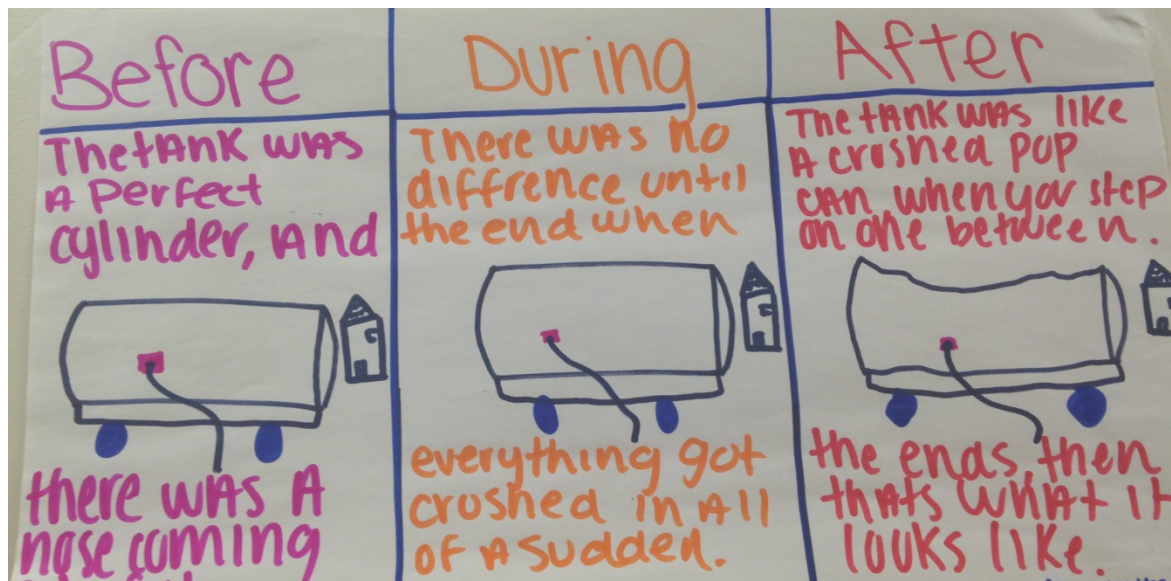 Before
The tank was
a perfect
cylinder, and
there was a
hose coming
During
There was no
diffrence until
the end when
everything got
crushed in all
of a sudden.
After
The tank was like
a crushed pop
can when you step
on one between.
the ends then
thats what it
looks like.